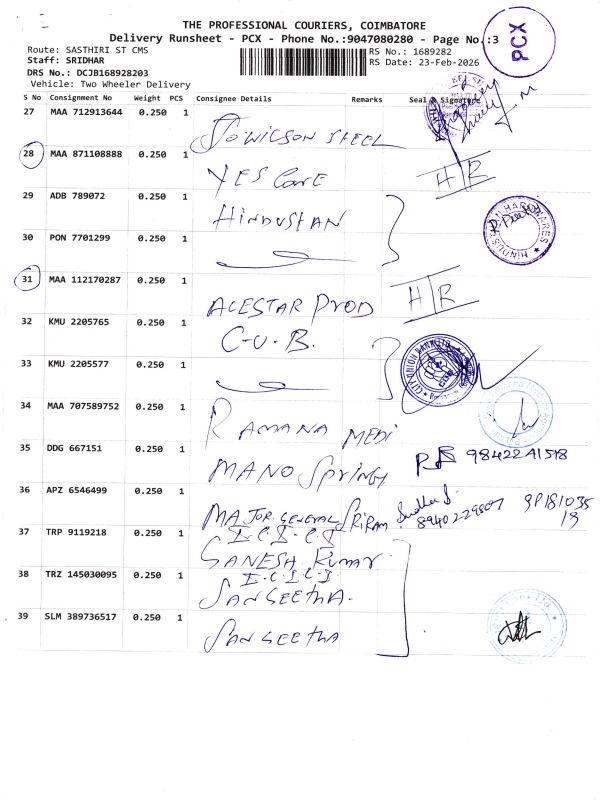 THE PROFESSIONAL COURIERS, COIMBATORE
Delivery Runsheet - PCX - Phone No.:9047080280 - Page No.:3
PCX
Route: SASTHIRI ST CMS
RS No.: 1689282
Staff: SRIDHAR
RS Date: 23-Feb-2026
DRS No.: DCJB168928203
Vehicle: Two Wheeler Delivery
S No Consignment No Weight PCS Consignee Details Remarks Seal & Signature
27 MAA 712913644 0.250 1 SOWILSON STEEL
28 MAA 871108888 0.250 1 YES Care H/R
29 ADB 789072 0.250 1 HINDUSTAN
HINDUSTAN HARDWARES
30 PON 7701299 0.250 1
31 MAA 112170287 0.250 1 ACESTAR PROD H/R
32 KMU 2205765 0.250 1 C-U-B.
CITY UNION BANK LTD
33 KMU 2205577 0.250 1
34 MAA 707589752 0.250 1 RAMANA MEDI
35 DDG 667151 0.250 1 MANO Spring 9842241518
36 APZ 6546499 0.250 1 MAJOR GENERAL SRIRAM 8940229807
37 TRP 9119218 0.250 1 I.C.I.C.I
GANESH Kumar
38 TRZ 145030095 0.250 1 I.C.I.C.I
SANGEETHA.
39 SLM 389736517 0.250 1 SANGEETHA